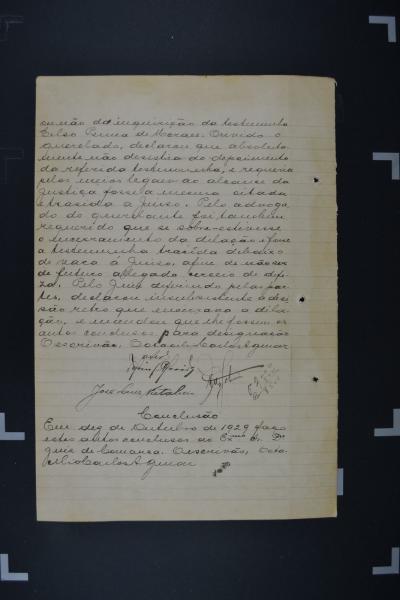 ou não da inquirição da testemunha
Celso Penna de Moraes. Ouvido o
querelado, declarou que absoluta-
mente não desistia do depoimento
da referida testemunha, e requeria
pelos meios legaes ao alcance da
Justiça fosse a mesma citada
e trasida a Juiso. Pelo advoga
do do querelante foi tambem
requerido que se sobre-estivesse
o encerramento da dilação e fosse
a testemunha trasida debaixo
de vara á Juiso, afim de não ser
de futuro allegado cerceio de defe-
za. Pelo Juis deferindo pelas par-
tes, declarou insubsistente a deci
são retro que encerrava a dila-
ção, e mandou que lhe fossem os
autos conclusos para designação
O escrivão, Octacilio Carlos Aguiar
José Luiz
Conclusão
Em dez de Outubro de 1929 faço
estes autos conclusos ao Exmo Sr. Dr.
Juis de Comarca. O escrivão, Octa-
cilio Carlos Aguiar